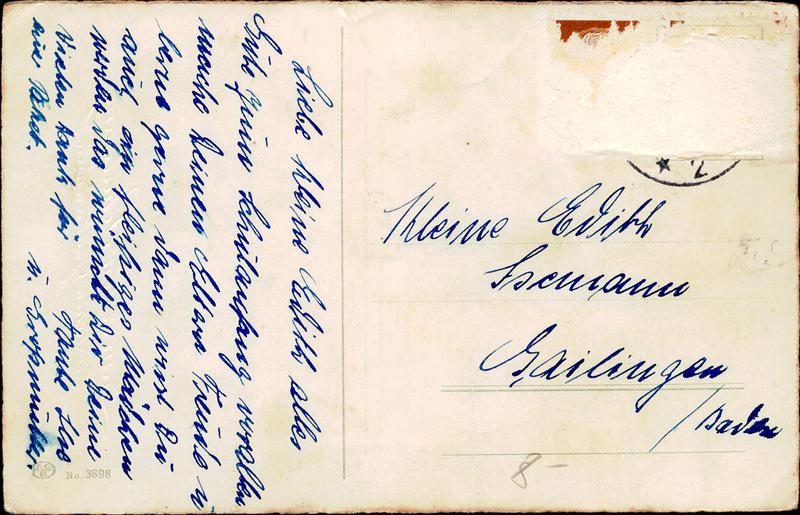 Liebe kleine Edith alles
Gute zum Schulanfang
mache Deinen Eltern Freude u
lerne gerne dann wirst Du
auch ein fleißiges Mädchen
werden das wünscht Dir Deine
Tante
Vielen Dank für
u. Großmutter.
No. 3898
2
Kleine Edith
Isemann
Gailingen
/Baden
8-